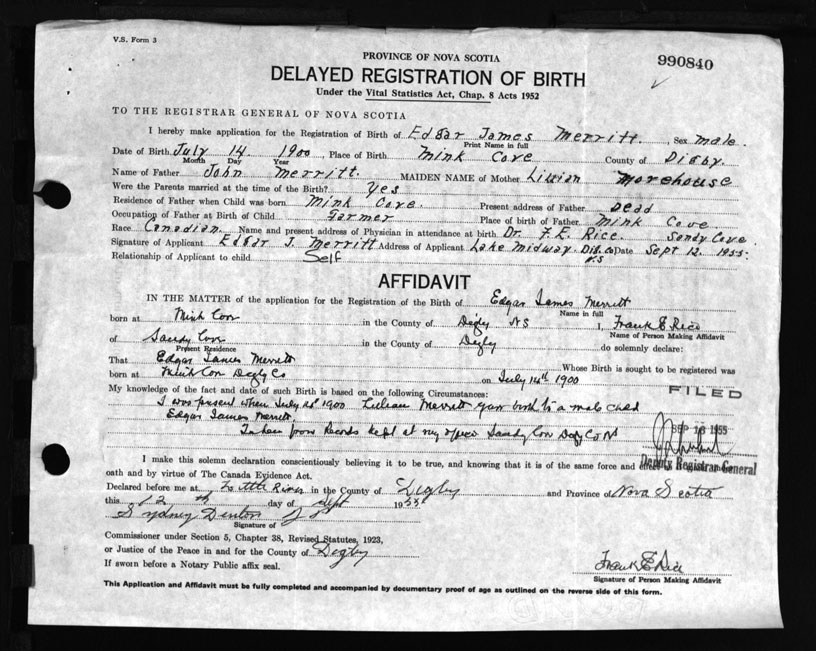 V.S. Form 3
PROVINCE OF NOVA SCOTIA
990840
DELAYED REGISTRATION OF BIRTH
Under the Vital Statistics Act, Chap. 8 Acts 1952
TO THE REGISTRAR GENERAL OF NOVA SCOTIA
I hereby make application for the Registration of Birth of Edgar James Merritt. Sex male.
Print Name in full
Date of Birth July 14 1900, Place of Birth Mink Cove County of Digby.
Month Day Year
Name of Father John Merritt. MAIDEN NAME of Mother Lillian Morehouse
Were the Parents married at the time of the Birth? Yes
Residence of Father when Child was born Mink Cove. Present address of Father Dead
Occupation of Father at Birth of Child Farmer Place of birth of Father Mink Cove
Race Canadian. Name and present address of Physician in attendance at birth Dr. F. E. Rice. Sandy Cove
Signature of Applicant Edgar J. Merritt Address of Applicant Lake Midway Dib. Co Date Sept 12. 1955.
N.S
Relationship of Applicant to child Self
AFFIDAVIT
IN THE MATTER of the application for the Registration of the Birth of Edgar James Merritt
Name in full
born at Mink Cov in the County of Digby NS I, Frank E Rice
Name of Person Making Affidavit
of Sandy Cov in the County of Digby do solemnly declare:
Present Residence
That Edgar James Merritt Whose Birth is sought to be registered was
born at Mink Cov Digby Co on July 14th 1900
My knowledge of the fact and date of such Birth is based on the following Circumstances:
FILED
I was present when July 14th 1900 Lillian Merritt gave birth to a male child
Edgar James Merritt
SEP 16 1955
Taken from Records kept at my office Sandy Cov Digby Co NS
Deputy Registrar General
I make this solemn declaration conscientiously believing it to be true, and knowing that it is of the same force and
oath and by virtue of The Canada Evidence Act.
Declared before me at Little River in the County of Digby and Province of Nova Scotia
this 12th day of Sept 1955
Sydney Denton J P
Signature of
Commissioner under Section 5, Chapter 38, Revised Statutes, 1923,
or Justice of the Peace in and for the County of Digby
If sworn before a Notary Public affix seal.
Frank E Rice
Signature of Person Making Affidavit
This Application and Affidavit must be fully completed and accompanied by documentary proof of age as outlined on the reverse side of this form.